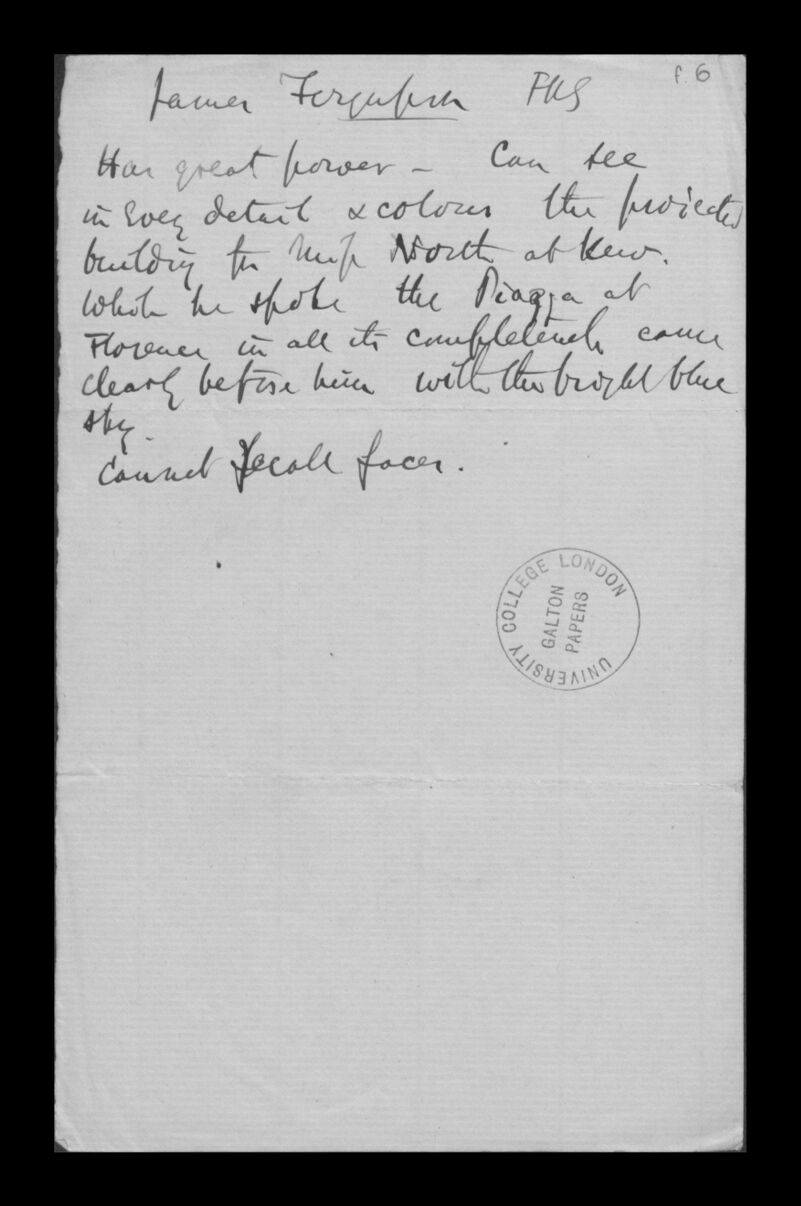 f. 6
James Fergusson FRS
Has great power - Can see
in Every detail & colour the projected
building for Miss North at Kew.
Whilst he spoke the Piazza at
Florence in all its completeness came
clearly before him with the bright blue
sky.
Cannot recall faces.
UNIVERSITY COLLEGE LONDON
GALTON
PAPERS